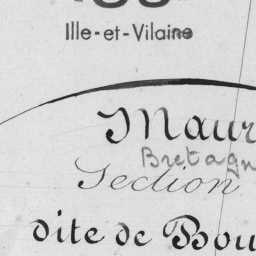 Ille-et-Vilaine
Maur
Bretagn
Section
dite de Bou